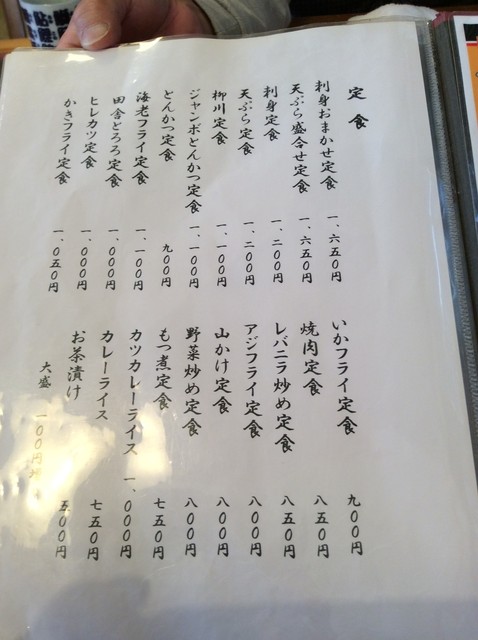 定食
刺身おまかせ定食 一、六五０円
天ぷら盛合せ定食 一、六五０円
刺身定食 一、二００円
天ぷら定食 一、二００円
柳川定食 一、一００円
ジャンボとんかつ定食 一、一００円
とんかつ定食 九００円
海老フライ定食 一、一００円
田舎どろろ定食 一、０００円
ヒレカツ定食 一、０００円
かきフライ定食 一、０五０円
いかフライ定食 九００円
焼肉定食 八五０円
レバニラ炒め定食 八五０円
アジフライ定食 八００円
山かけ定食 八００円
野菜炒め定食 八００円
もつ煮定食 七五０円
カツカレーライス 一、０００円
カレーライス 七五０円
お茶漬け 五００円
大盛 一００円